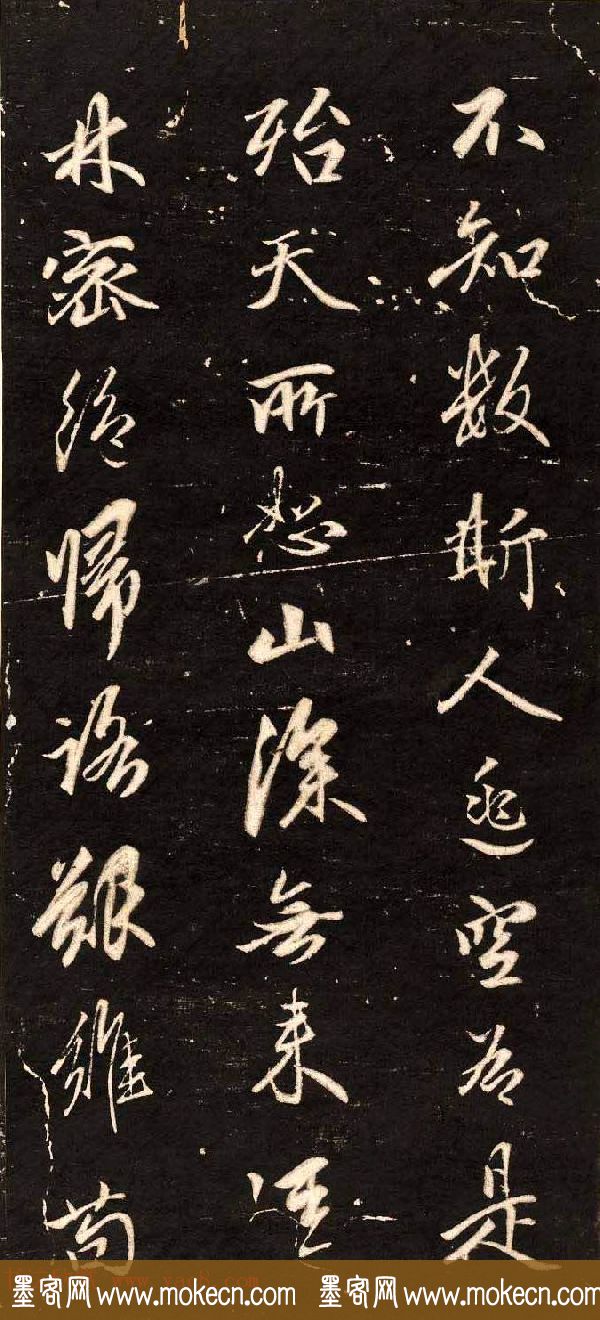 不知數斯人空是
殆天所恕山深無来
林密絶歸路艱苟
墨客网 www.mokecn.com 墨客网 www.mokecn.com